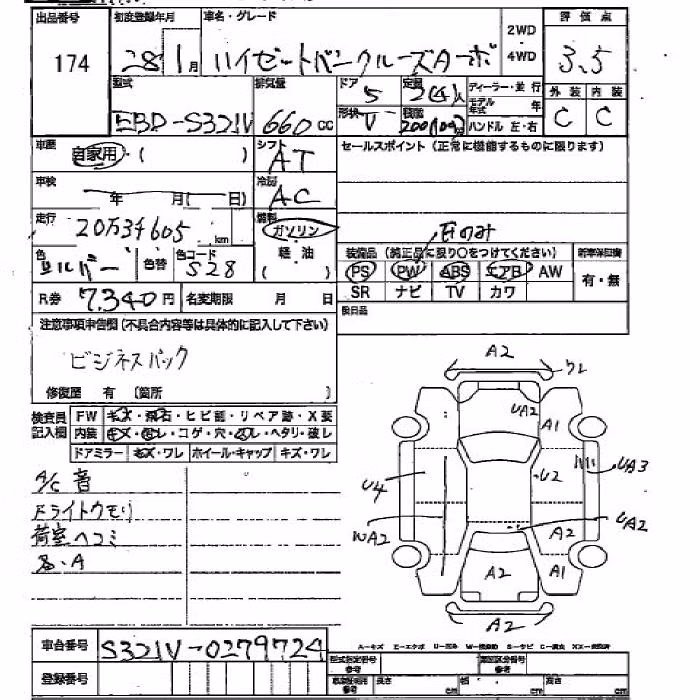 出品番号 初度登録年月 車名・グレード 2WD 評価点
174 28 1月 ハイゼットバンクルーズターボ 4WD 3.5
型式 排気量 ドア 5 定員 2(4)人 ディーラー・並行 外装 内装
EBD-S321V 660cc 形状 V 積載 モデル年式 年 C C
ハンドル 左・右
車歴 自家用・( ) シフト AT セールスポイント (正常に機能するものに限ります)
車検 年 月( 日) 冷房 AC
走行 20万3千605 km 燃料 ガソリン 右のみ
色 シルバー 色替 色コード S28 軽油 ( )
装備品(純正品に限り○をつけてください) 新車保証書
PS PW ABS エアB AW 有・無
SR ナビ TV カワ
R券 7,340円 名変期限 月 日
注意事項申告欄(不具合内容等は具体的に記入して下さい)
ビジネスパック
修復歴 有 〔箇所 〕
検査員記入欄 FW キズ・飛石・ヒビ割・リペア跡・X要
内装 キズ・ヨゴレ・コゲ・穴・ヘタリ・破レ
ドアミラー キズ・ワレ ホイール・キャップ キズ・ワレ
A/C 音
ドライトクモリ
荷室ヘコミ
A2 ワレ
UA2 A1
U4 U2 UA3
WA2 UA2
A2 A2 A1
A2
車台番号 S321V-0279724
登録番号
型式指定番号 参考 類別区分番号 参考
長さ cm 幅 cm 高さ cm